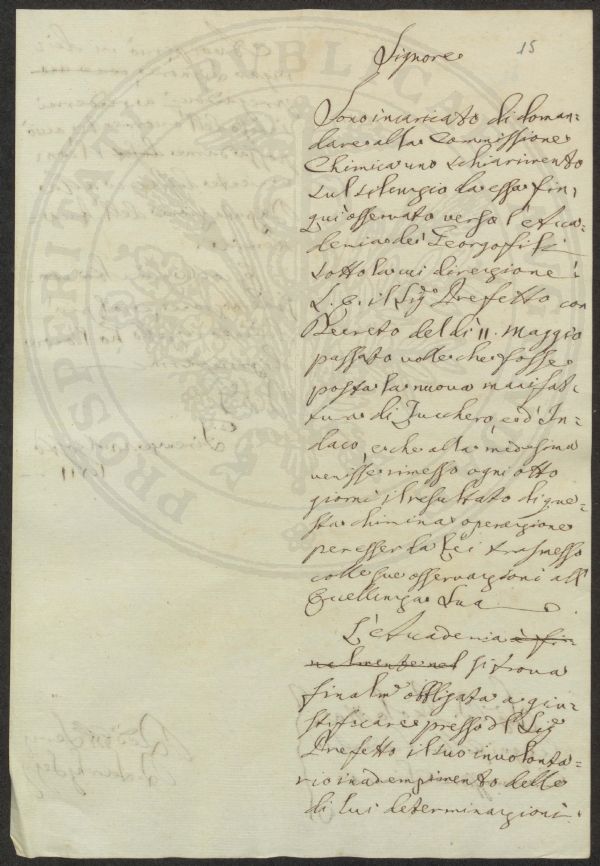 15
Signore
Sono incaricato di doman=
dare alla Commissione
Chimica uno schiarimento
sul silenzio da essa fin=
quì osservato verso l'Acca=
demia dei Georgofili
sotto la cui direzione
S. E. il Sig.e Prefetto con
Decreto del dì 11. Maggio
passato volle che fosse
posta la nuova manifat=
tura di Zucchero, e d'In=
daco, e che alla medesima
venisse rimesso ogni otto
giorni il resultato di que=
sta chimica operazione
per esser da Lei trasmesso
colle sue osservazioni all'
Eccellenza Sua
L'Accademia è fi=
nalmente nel si trova
finalm.e obbligata a giu=
stificare presso il Sig.
Prefetto il suo involonta=
rio inadempimento delle
di lui determinazioni.
PROSPERITATI PUBLICAE AUG